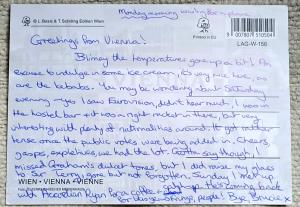 © L. Basis & T. Schilling Edition Wien
Monday morning waiting for a plane
Printed in EU
9 007807 510504
LAG-W-156
Greetings from Vienna!
Blimey the temperatures gone up a bit! An
excuse to indulge in some ice cream, it's very nice here, as
are the kebabs. You may be wondering about Saturday
evening - yes I saw Eurovision, didn't hear much, I was in
the hostel bar & it was a right racket in there, but very
interesting with plenty of nationalities around. It got rather
tense once the public votes were being added in, cheers,
gasps, expletives we had the lot. Gotta say though, I
missed Graham's dulcet tones but I did raise my glass
to Sir Terry, gone but not forgotten. Sunday I met up
WIEN • VIENNA • VIENNE
with Accordion Ryan for a coffee - he's coming back
for people. Bye Bruce x